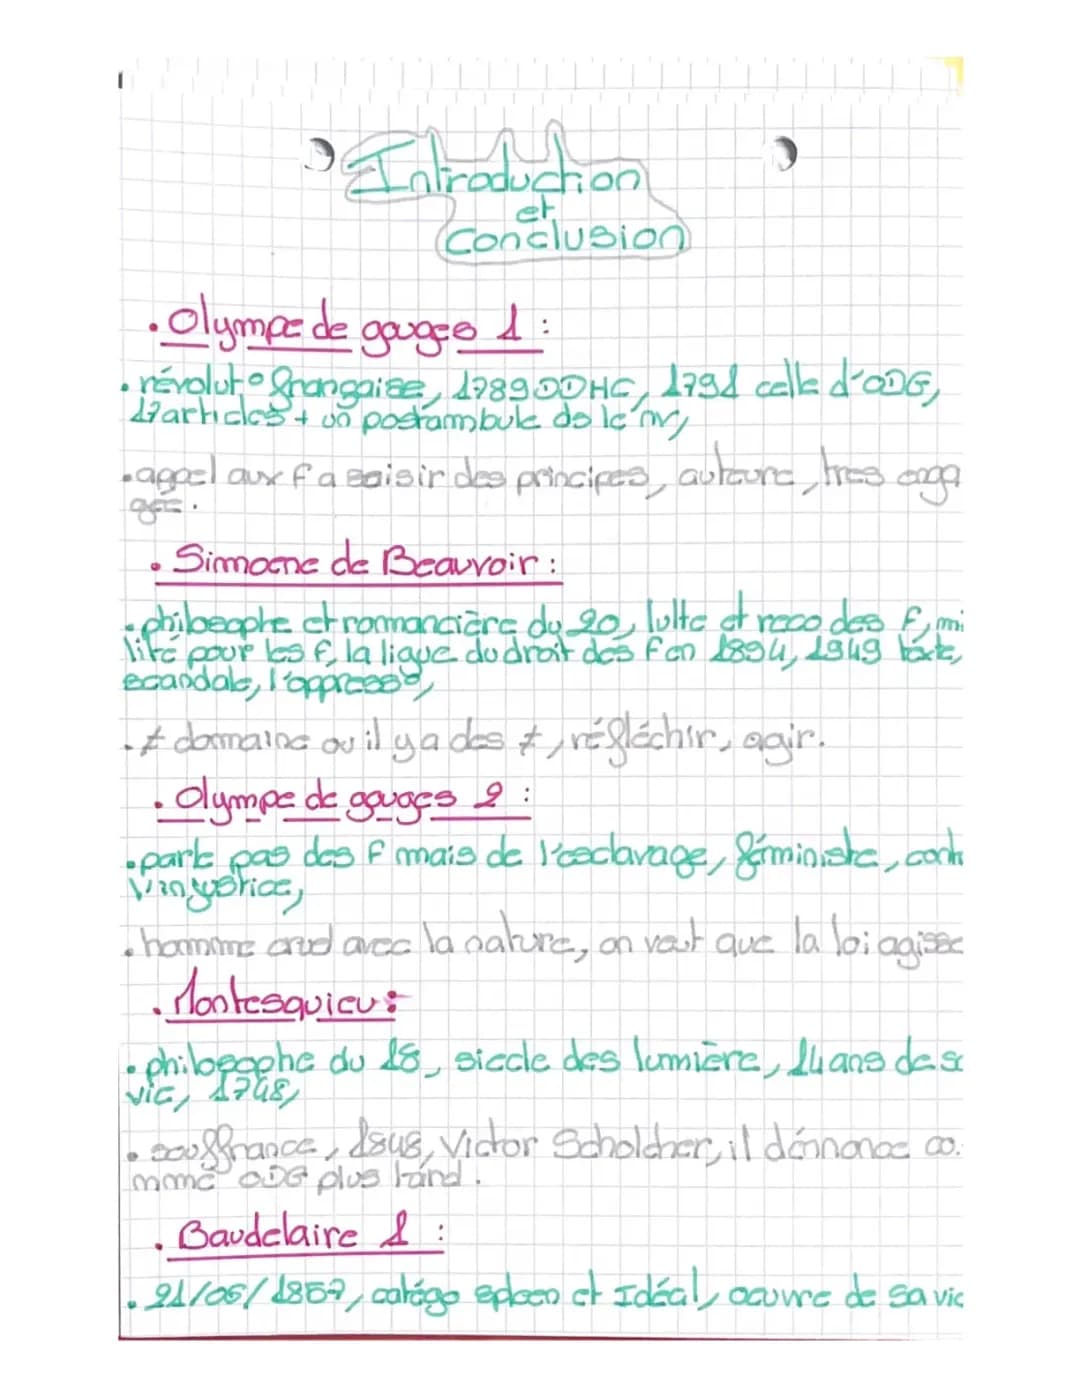 Introduction
et
Conclusion
. Olympe de gouges 1 :
. révolut° française, 1789 DDHC, 1791 celle d'ODG,
17 articles + un postambule ds le nv,
. appel aux f a saisir des principes, auteure, tres enga
gée.
. Simoene de Beauvoir :
. philosophe et romancière du 20, lutte et reco des f, mi
lité pour les f, la ligue du droit des f en 1894, 1949 texte,
scandale, l'oppress°,
. ≠ domaine ou il y a des ≠, réfléchir, agir.
. Olympe de gouges 2 :
. parle pas des f mais de l'esclavage, féministe, contr
l'injustice,
. homme cruel avec la nature, on veut que la loi agisse
. Montesquieu :
. philosophe du 18, siecle des lumière, 14 ans de sa
vie, 1748,
. souffrance, 1848, Victor Scholcher, il dénnonce co.
mme ODG plus tard.
. Baudelaire 1 :
. 21/06/1857, catégo spleen et Idéal, oeuvre de sa vie